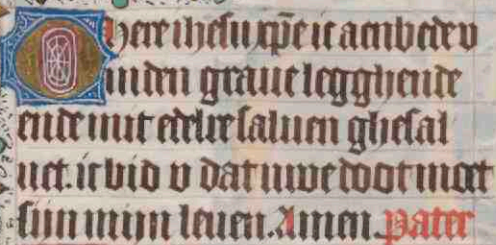 O here ihesu xpe ic aenbede v
inden graue legghende
ende mit edelre saluen ghesal
uet. ic bid v dat uwe doot moet
sijn mijn leuen. Amen. Pater